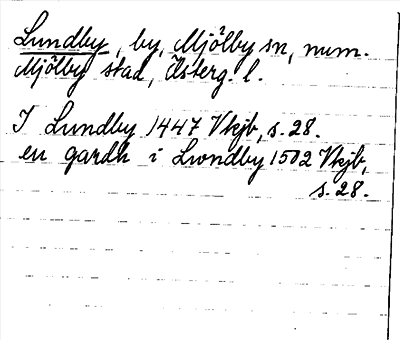 Lundby, by, Mjölby sn, num.
Mjölby stad, Österg. l.
I Lundby 1447 Vkjb, s. 28.
en gardh i Lwndby 1502 Vkjb,
s. 28.